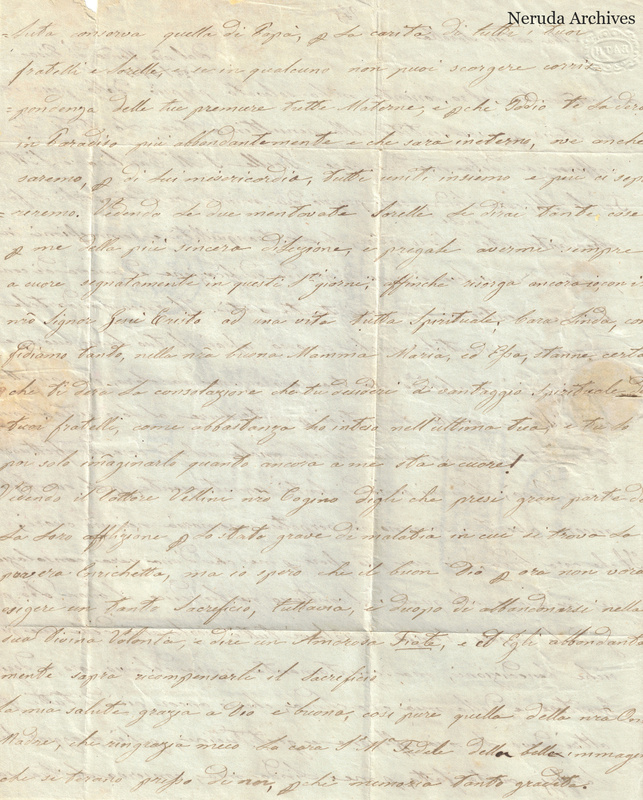 Neruda Archives
=luta, osserva quella di Papà, p la carità di tutti i tuoi
fratelli e Sorelle, e se in qualcuno non puoi scorgere corris=
=pondenza delle tue premure tutte Materne, è pchè Iddio te la
in Paradiso più abbondantemente e che sarà in eterno, ove anche
saremo, p di Lui misericordia, tutti uniti insieme e più ci sepa
=reremo. Vedendo le due mentovate Sorelle Le dirai tante cose
p me della più sincera dilezione, e pregale avermi sempre
a cuore segnatamente in questi Sti giorni, affinchè risorga ancora io con
nrõ Signor Gesù Cristo ad una vita tutta Spirituale, Cara Linda, con
fidiamo tanto, nella nrã buona Mamma Maria, ed Essa, stanne certa
che ti darà la consolazione che tu desideri di vantaggio Spirituale
tuoi fratelli, come abbastanza ho inteso nell'ultima tua, e tu lo
poi solo imaginarlo quanto ancora a me sta a cuore!
Vedendo il Dottore Vellini nrõ Cogino digli che presi gran parte
la loro afflizione p lo stato grave di malatia in cui si trova la
povera Enrichetta, ma io spero che il buon Dio p ora non vorà
esigere un tanto Sacrificio, tuttavia, è duopo di abbandonarsi nella
sua Divina Volontà, e dire un Amoroso Fiate, e Egli abbondante
mente saprà ricompensarli il Sacrificio
La mia salute grazia a Dio è buona, così pure quella della nrã
Madre, che ringrazia meco la cara Sr Ma Fedele della bella immagine
che si terano presso di noi, pchè memoria tanto gradita.